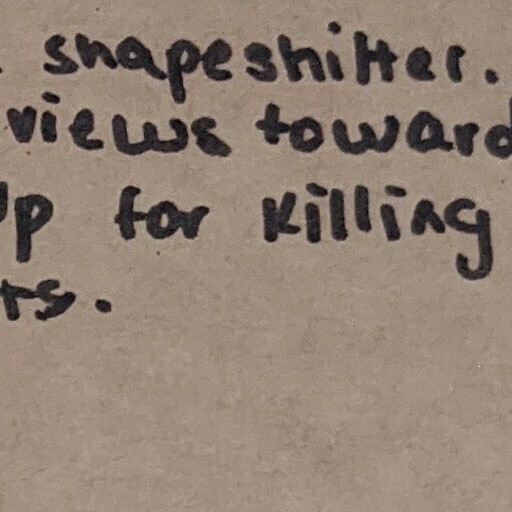 shapeshifter.
views toward
up for killing
rs.